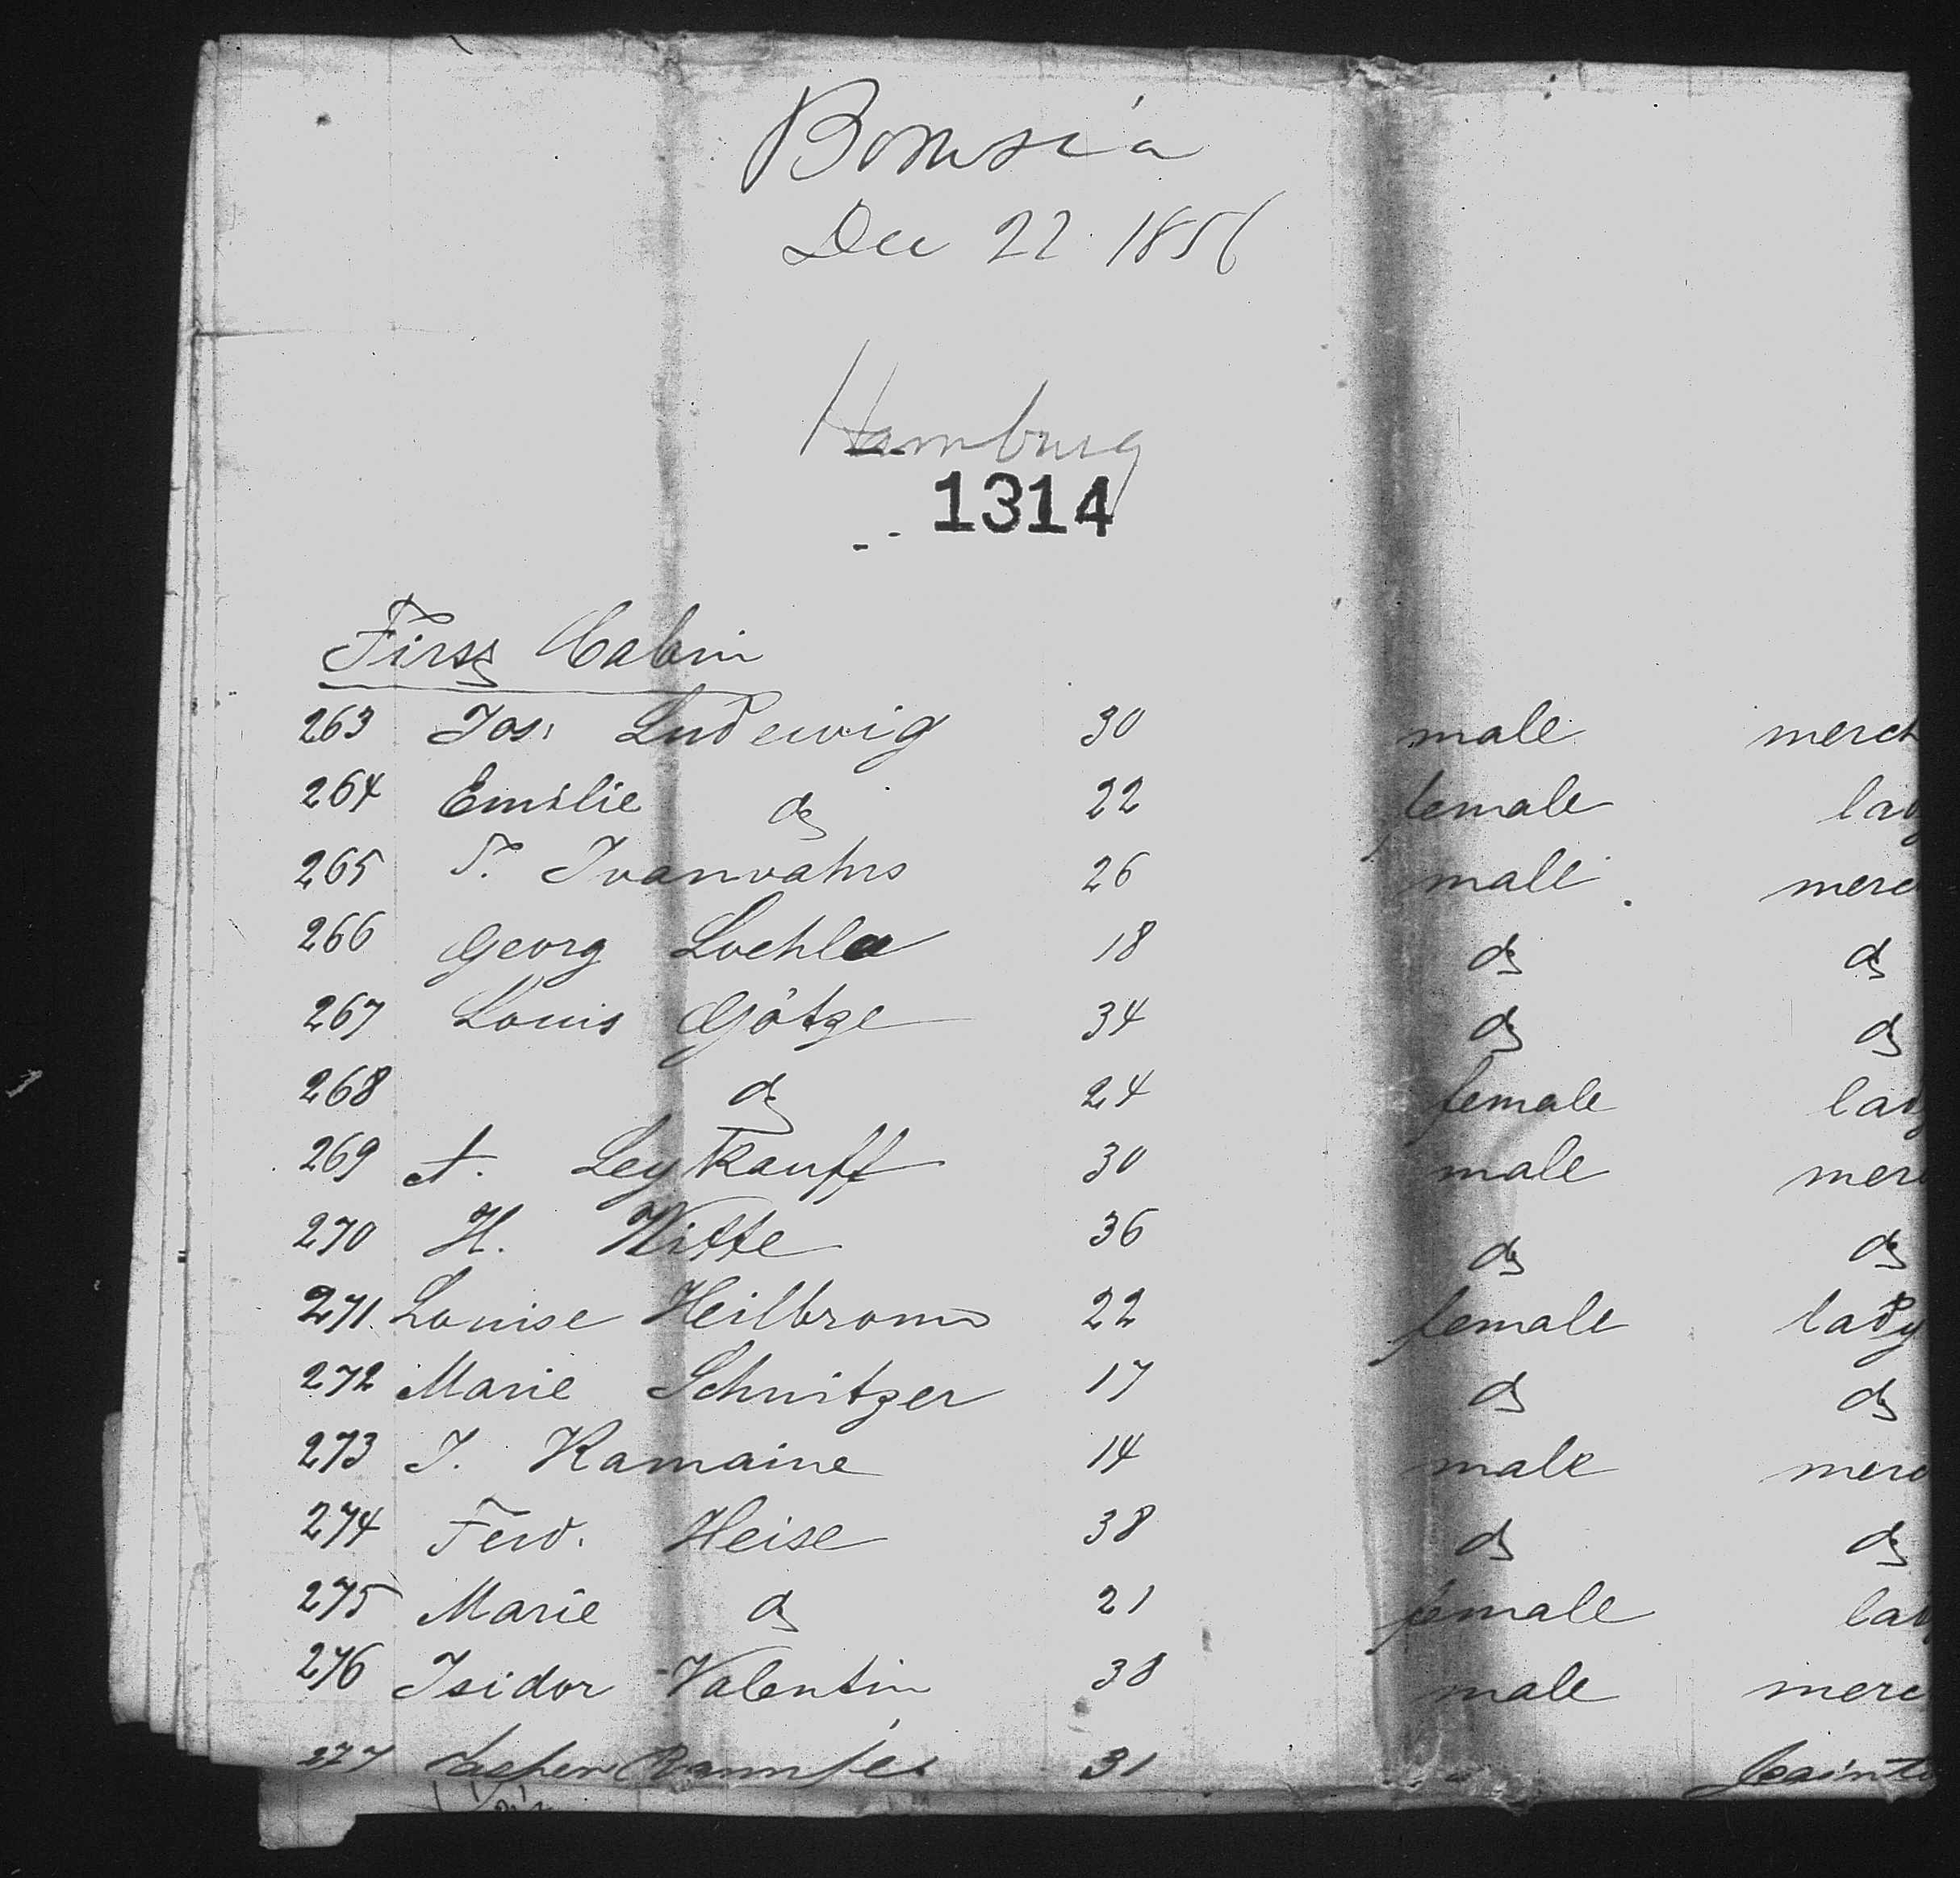 Borussia
Dec 22 1856
Hamburg
1314
First Cabin
263 Jos. Ludewig 30 male merch
264 Emilie do 22 female lady
265 T. Ivanvahs 26 male merc
266 Georg Loehle 18 do do
267 Louis Götze 34 do do
268 do 24 female lady
269 A. Leykauff 30 male merc
270 H. Witte 36 do do
271 Louise Heilbronn 22 female lady
272 Marie Schnitzer 17 do do
273 J. Kamaine 14 male merc
274 Ferd. Heise 38 do do
275 Marie do 21 female lad
276 Isidor Valentin 38 male merc
277 31